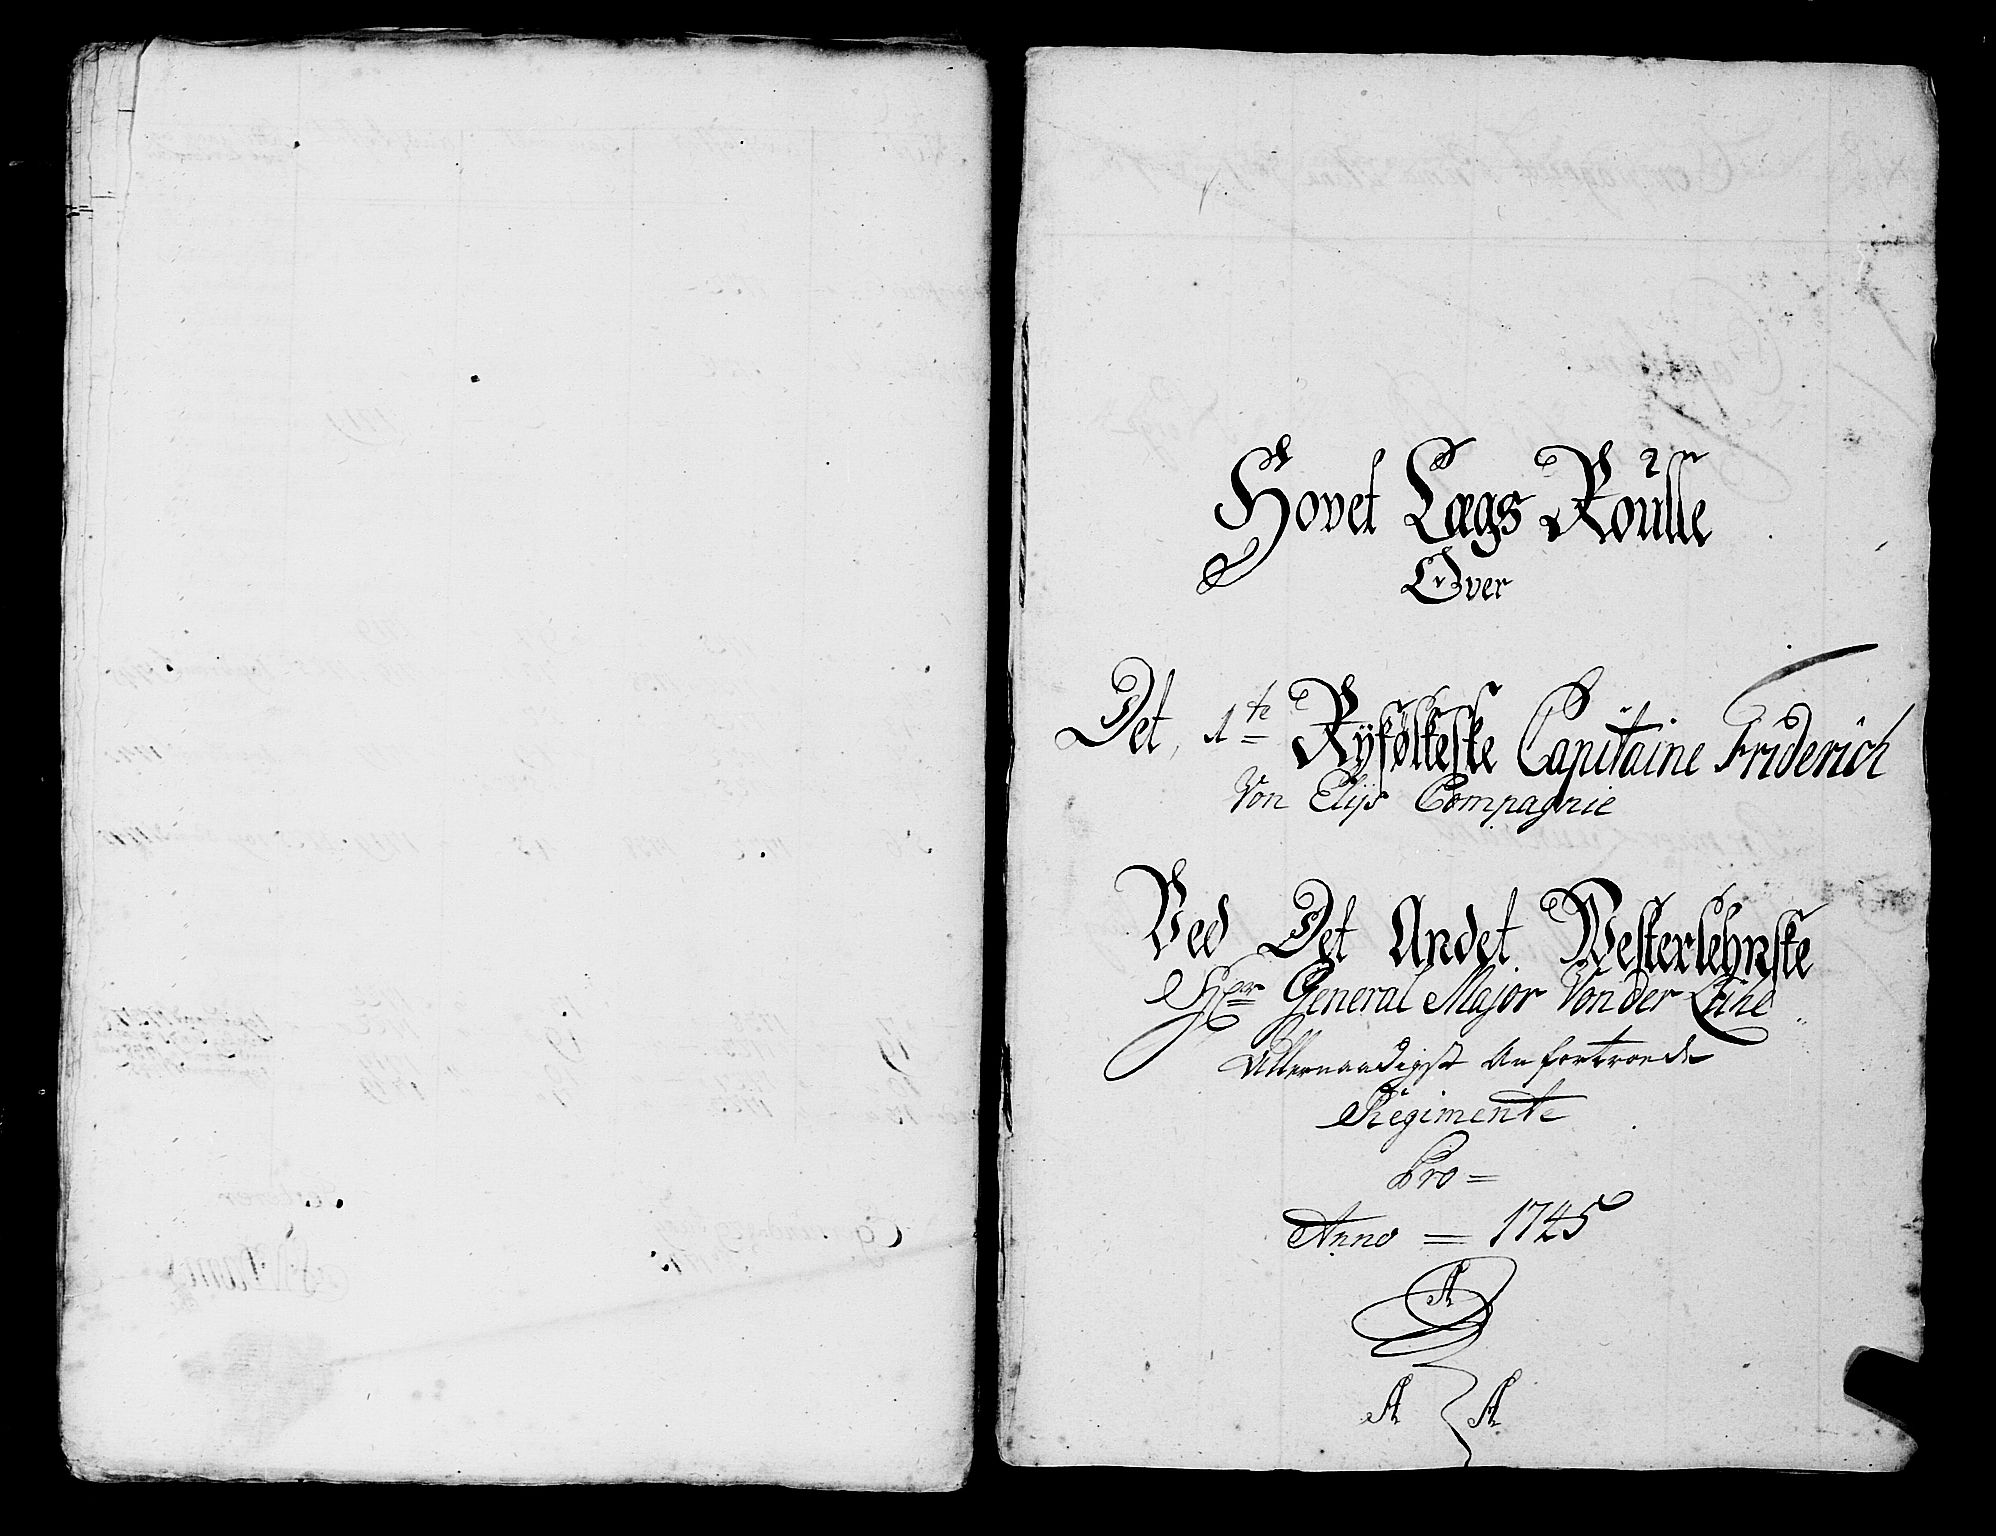 Hovet Lægs Roulle
Over
Det 1te Ryfølkeske Capitaine Friderich
Von Elys Compagnie
Ved Det Andet Westerlehnske
Hr General Major Von der Lühe
Allernaadigst Anfortroede
Regimente
Pro =
Anno = 1745
A
A A